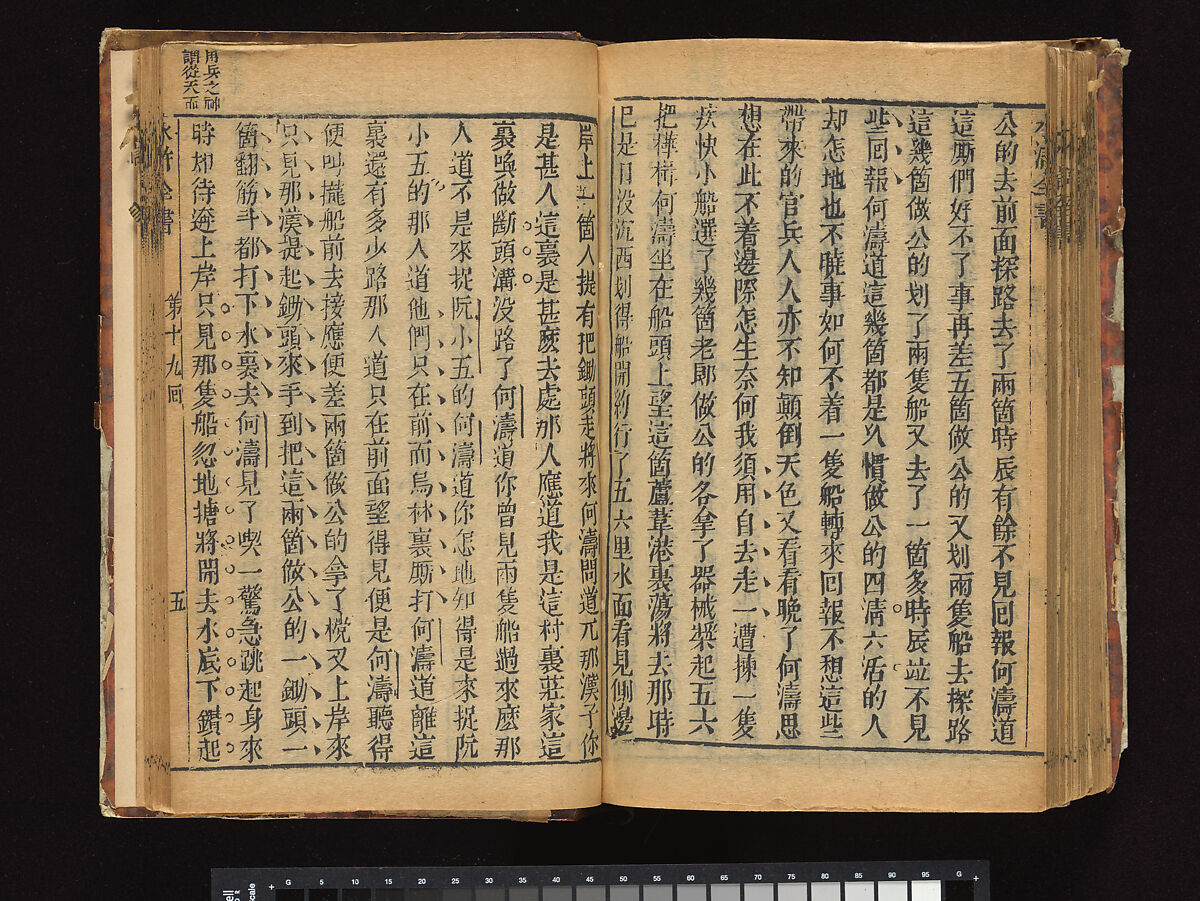 公的去前面探路去了兩箇時辰有餘不見回報何濤道
這厮們好不了事再差五箇做公的又划兩隻船去探路
這幾箇做公的划了兩隻船又去了一箇多時辰竝不見
些回報何濤道這幾箇都是久慣做公的四清六活的人
却怎地也不曉事如何不着一隻船轉來回報不想這些
帶來的官兵人人亦不知顛倒天色又看看晚了何濤思
想在此不着邊際怎生奈何我須用自去走一遭揀一隻
疾快小船選了幾箇老郎做公的各拿了器械槳起五六
把樺楫何濤坐在船頭上望這箇蘆葦港裏蕩將去那時
已是日没沉西划得船開約行了五六里水面看見側邊
岸上一箇人提有把鋤頭走將來何濤問道兀那漢子你
是甚人這裏是甚麽去處那人應道我是這村裏莊家這
裏喚做斷頭溝没路了何濤道你曾見兩隻船過來麽那
人道不是來捉阮小五的何濤道你怎地知得是來捉阮
小五的那人道他們只在前面烏林裏厮打何濤道離這
裏還有多少路那人道只在前面望得見便是何濤聽得
便叫攏船前去接應便差兩箇做公的拿了欓叉上岸來
只見那漢提起鋤頭來手到把這兩箇做公的一鋤頭一
箇翻筋斗都打下水裏去何濤見了喫一驚急跳起身來
時却待奔上岸只見那隻船忽地搪將開去水底下鑽起
用兵之神
謂從天而
水滸全書
第十九回
五